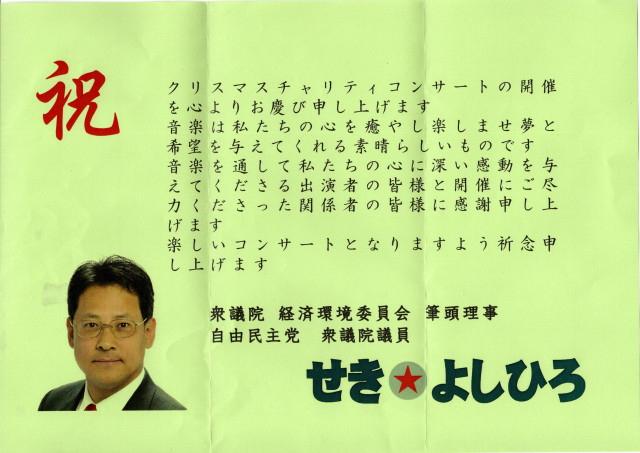 祝
クリスマスチャリティコンサートの開催
を心よりお慶び申し上げます
音楽は私たちの心を癒やし楽しませ夢と
希望を与えてくれる素晴らしいものです
音楽を通して私たちの心に深い感動を与
えてくださる出演者の皆様と開催にご尽
力くださった関係者の皆様に感謝申し上
げます
楽しいコンサートとなりますよう祈念申
し上げます
衆議院 経済環境委員会 筆頭理事
自由民主党 衆議院議員
せき★よしひろ